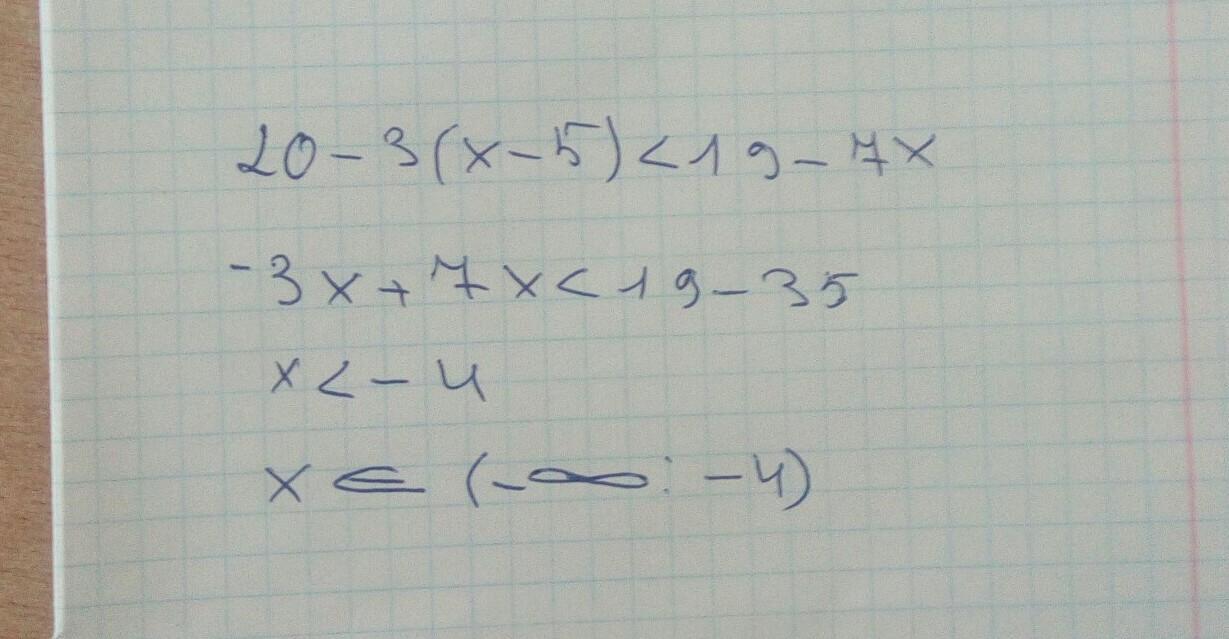 20-3(x-5)<19-7x
-3x+7x<19-35
x<-4
x∈(-∞: -4)